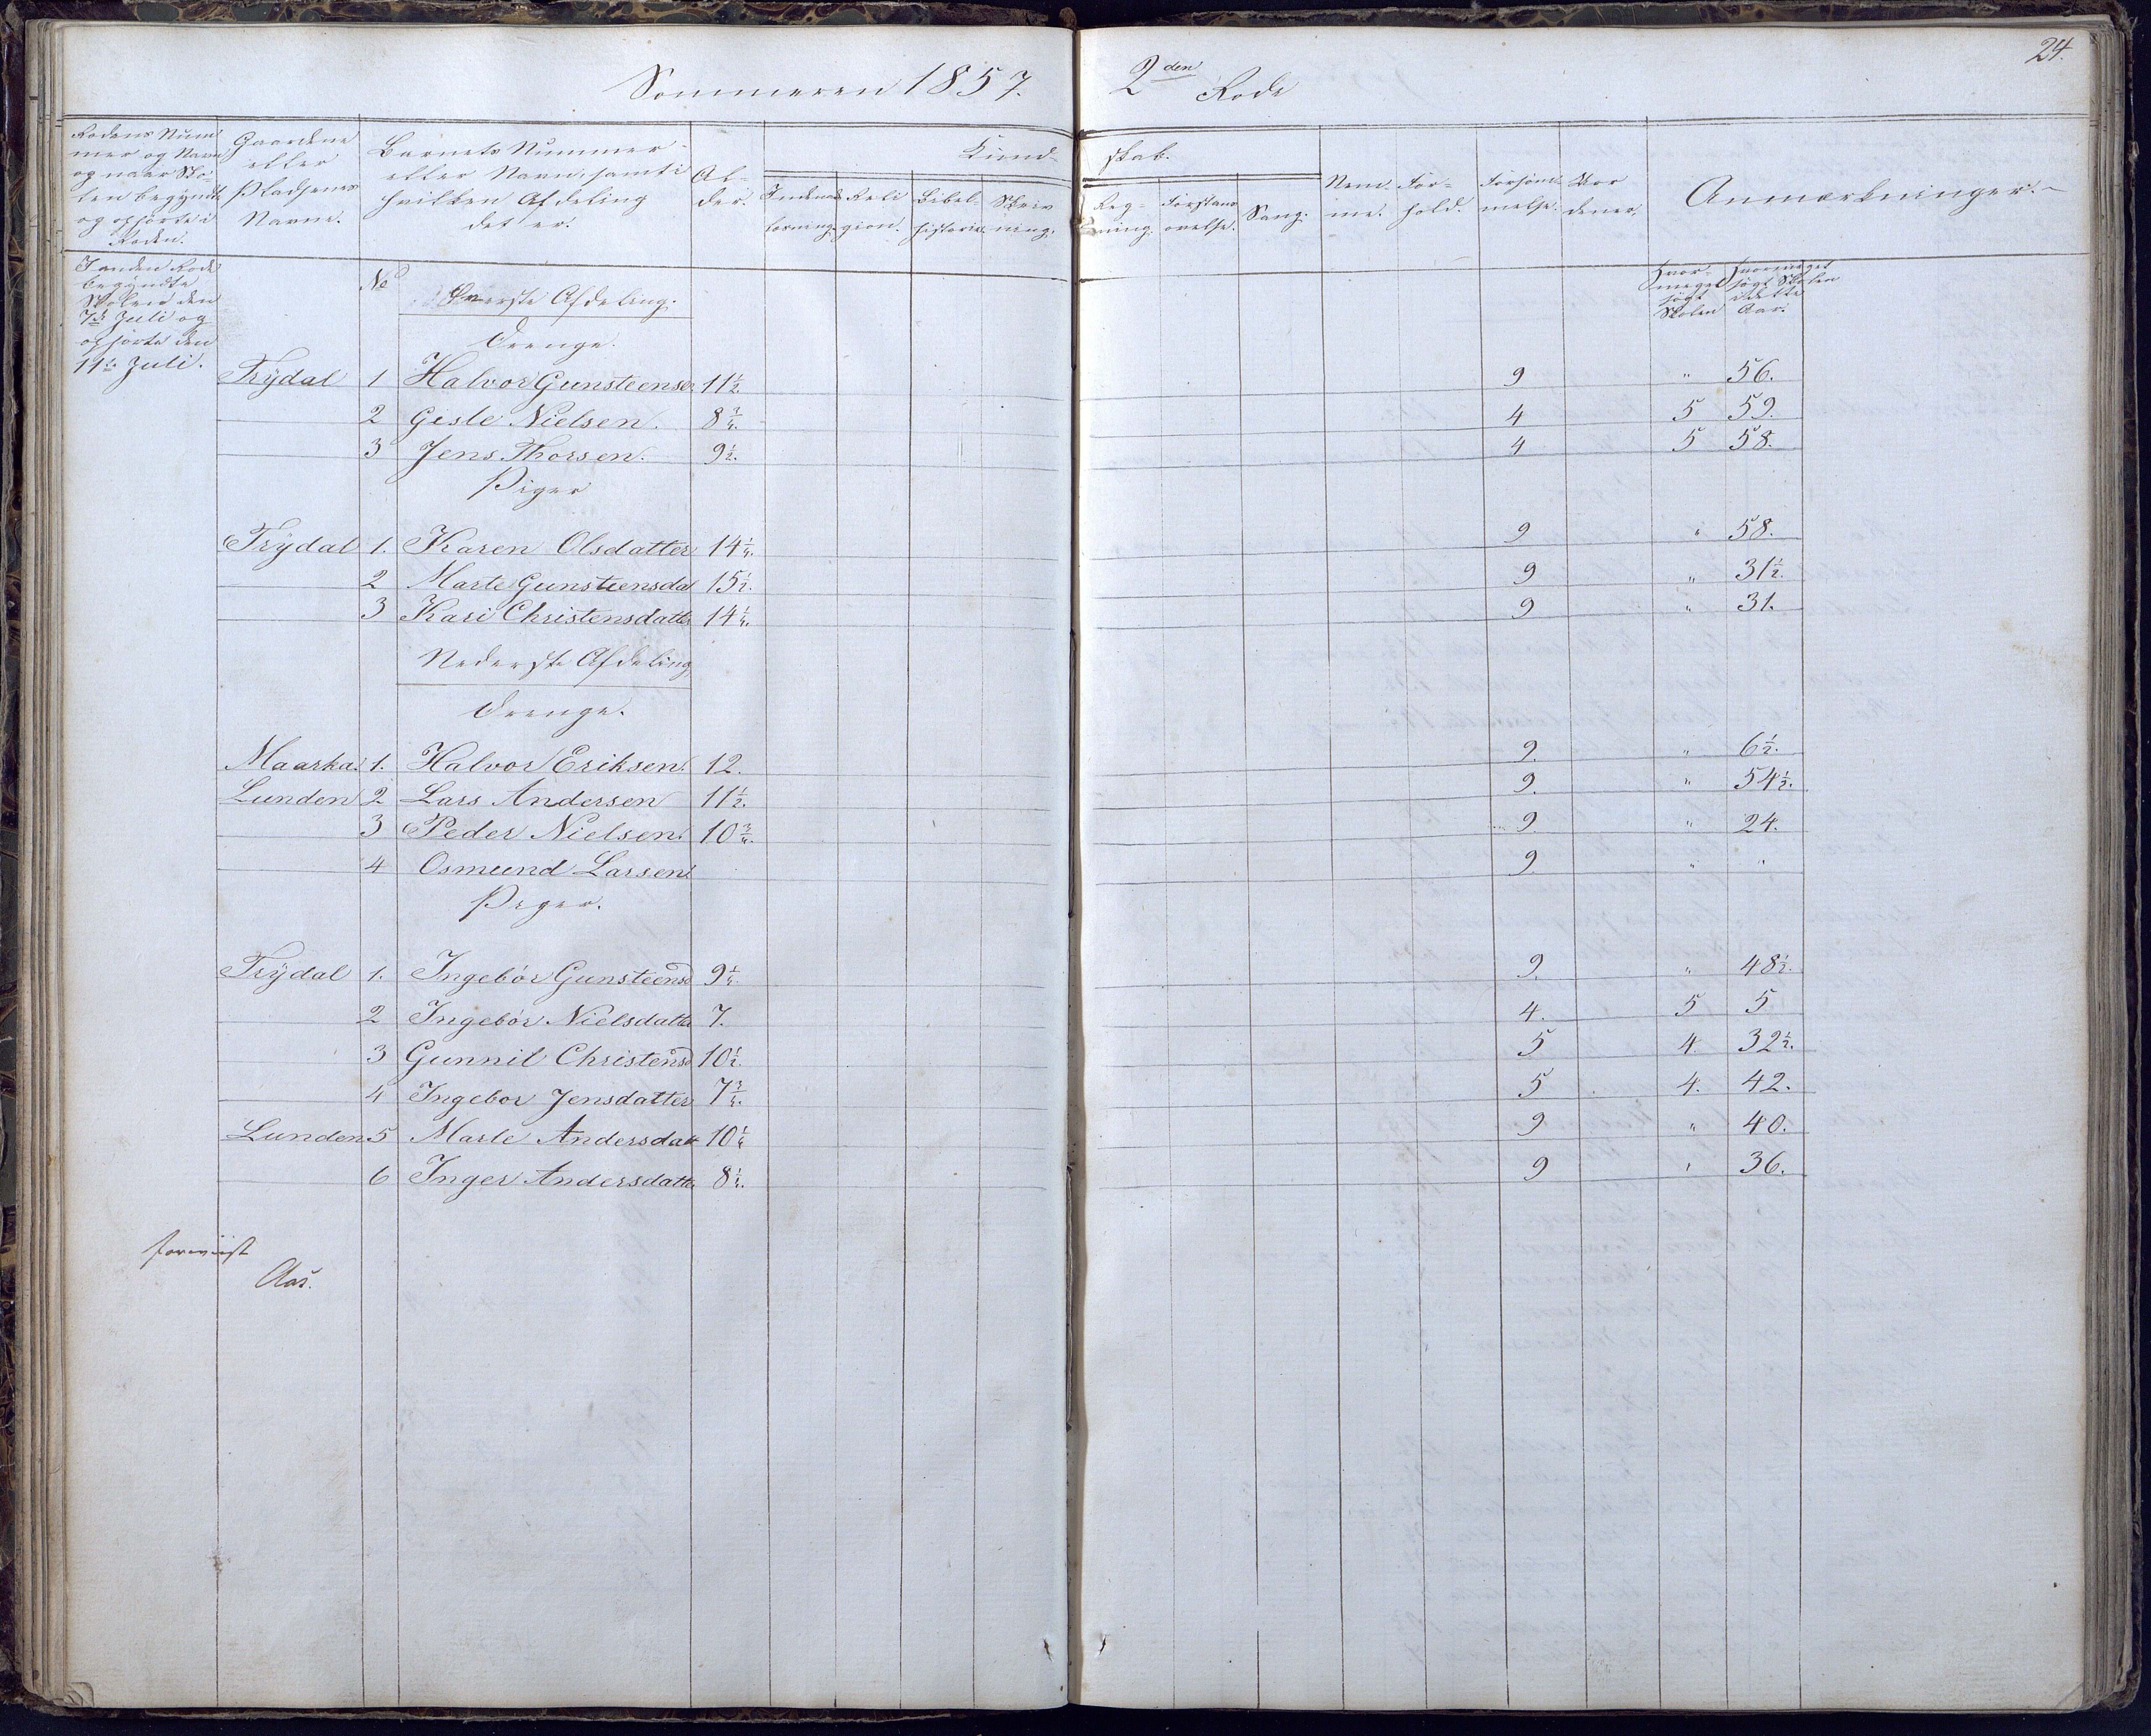 24.
Sommeren 1857. 2den Rode
Rodens Num-
mer og Navn
og naar Sko-
len begyndte
og ophørte i
Roden.
Gaardene
eller
Pladsenes
Navne.
Barnets Nummer
eller Navn, samt i
hvilken Afdeling
det er.
Al-
der.
Kund-
skab.
Indenad-
læsning.
Reli
gion.
Bibel-
historie.
Skriv
ning.
Reg-
ning.
Forstands
øvelse.
Sang.
Nem-
me.
For-
hold.
Forsøm-
melse.
Anmærkninger.
I anden Rode
begyndte
Skolen den
7de Juli og
ophørte den
11te Juli.
No
Øverste Afdeling.
Hvor-
meget
søgt
Skolen
Hvormeget
søgt Skolen
i dette
Aar.
Drenge.
Trydal 1 Halvor Gunsteensen 11½. 9 " 56.
2 Gesle Nielsen. 8¾. 4 5 59.
3 Jens Thorsen. 9½. 4 5 58.
Piger
Trydal 1. Karen Olsdatter 14¼. 9 " 58.
2 Marte Gunsteensdat 15½. 9 " 31½.
3 Kari Christensdatter 14¼. 9 " 31.
Nederste Afdeling
Drenge.
Maarka. 1. Halvor Eriksen. 12. 9. " 6½.
Lunden 2 Lars Andersen 11½. 9. " 54½.
3 Peder Nielsen. 10¾. 9. " 24.
4 Osmund Larsen 9. " "
Piger.
Trydal 1. Ingebør Gunsteensd 9¼. 9. " 48½.
2 Ingebør Nielsdatter 7. 4. 5 5
3 Gunnil Christensd 10½. 5 4. 32½.
4 Ingebor Jensdatter 7¾. 5 4. 42.
Lunden 5 Marte Andersdatt 10¼ 9 " 40.
6 Inger Andersdatter 8¼. 9 " 36.
foreviist
Aas.